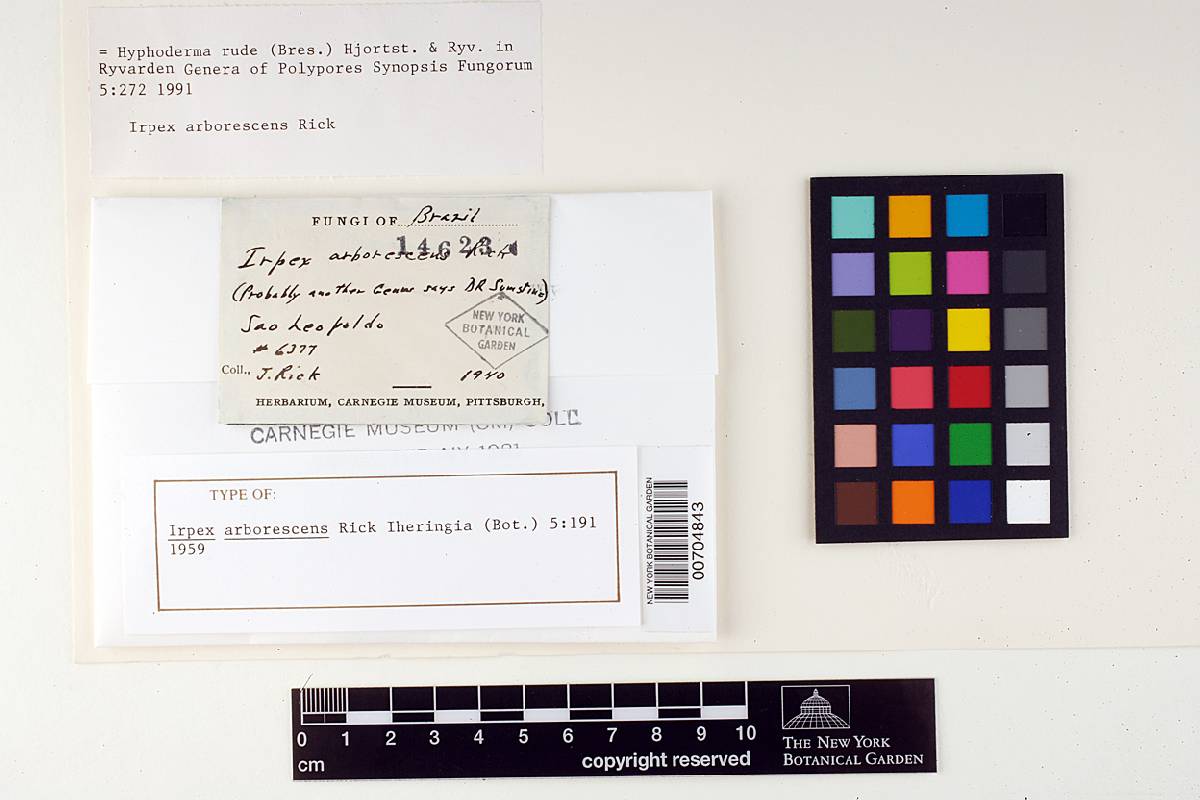 = Hyphoderma rude (Bres.) Hjortst. & Ryv. in
Ryvarden Genera of Polypores Synopsis Fungorum
5:272 1991
Irpex arborescens Rick
FUNGI OF Brazil
14623
Irpex arborescens Rick
(Probably another Genus says DR Sumstine)
Sao Leopoldo
# 6377
NEW YORK
BOTANICAL
GARDEN
Coll., J. Rick 1940
HERBARIUM, CARNEGIE MUSEUM, PITTSBURGH,
CARNEGIE MUSEUM (CM) COLL
TYPE OF:
Irpex arborescens Rick Iheringia (Bot.) 5:191
1959
NEW YORK BOTANICAL GARDEN
00704843
0 1 2 3 4 5 6 7 8 9 10
cm
copyright reserved
THE NEW YORK
BOTANICAL GARDEN